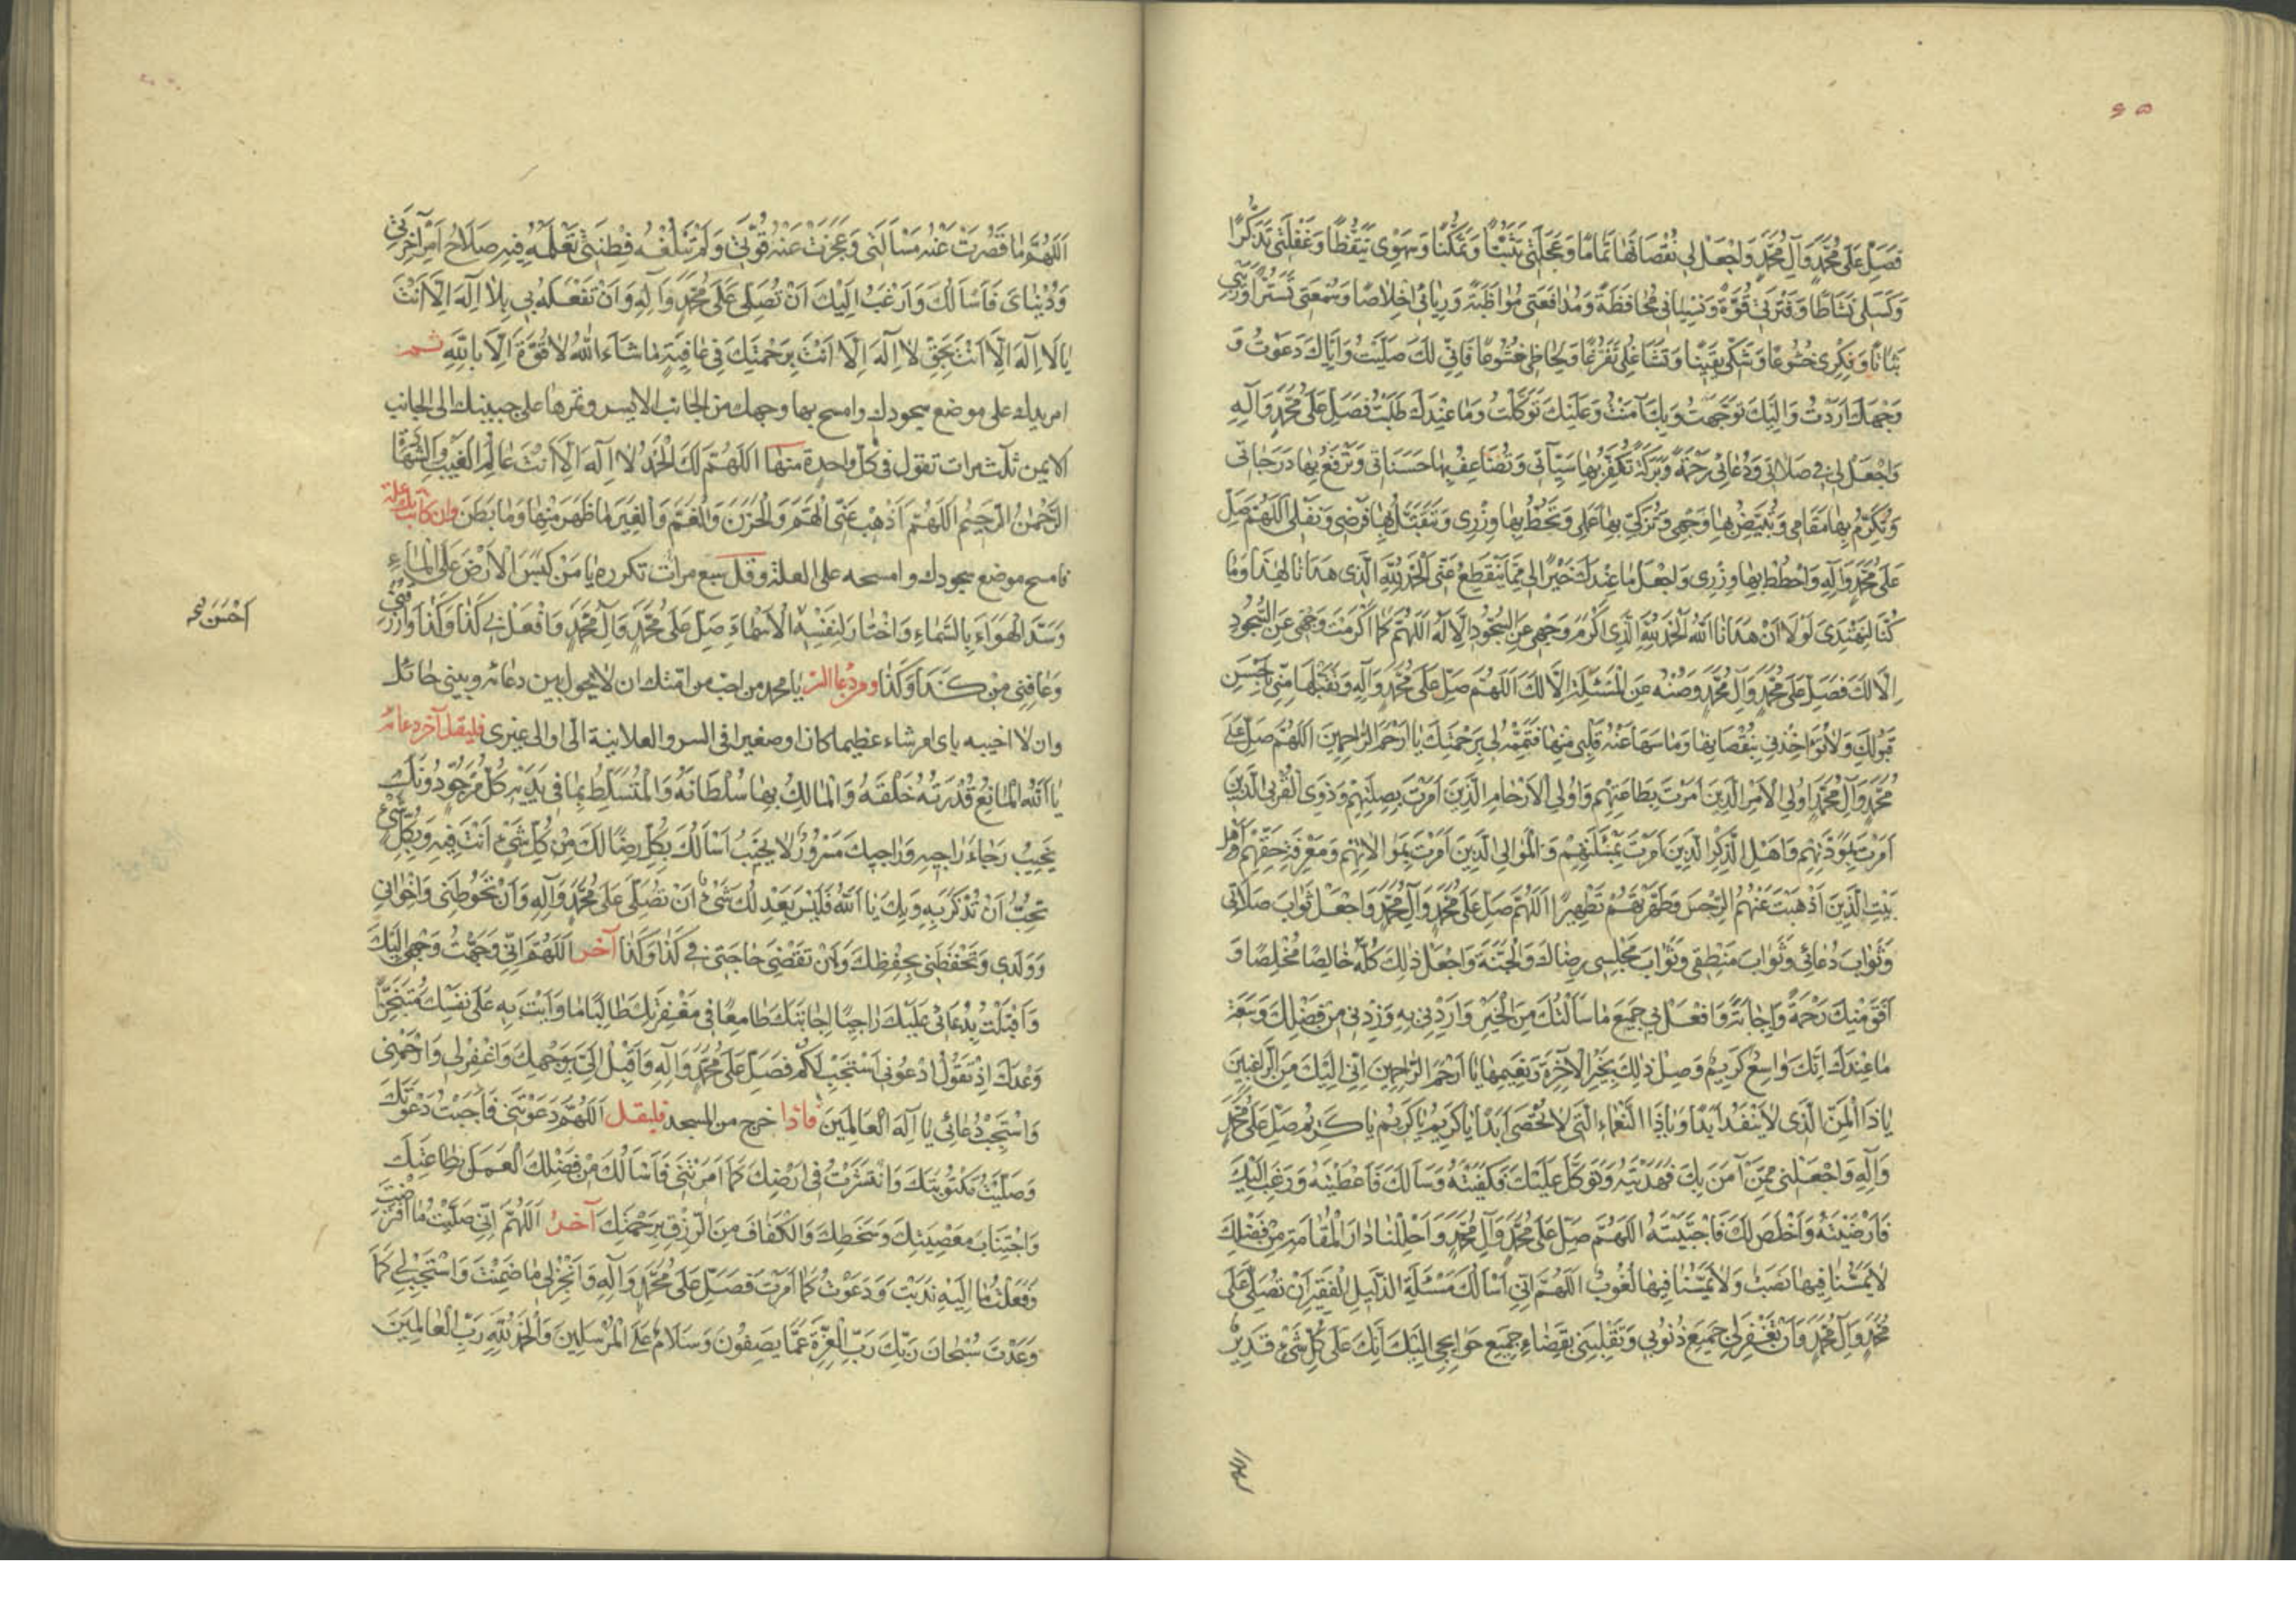 ٤٥
فَصَلِّ عَلىٰ مُحَمَّدٍ وَآلِ مُحَمَّدٍ وَاجْعَلْ لِي نُقْصَانَهَا تَمَامًا وَعَجَلَتِي تَثَبُّتًا وَتَمَكُّنًا وَسَهْوِي تَيَقُّظًا وَغَفْلَتِي تَذَكُّرًا
وَكَسَلِي نَشَاطًا وَفَتْرَتِي قُوَّةً وَنِسْيَانِي مُحَافَظَةً وَمُدَافَعَتِي مُوَاظَبَةً وَرِيَائِي اِخْلَاصًا وَسُمْعَتِي تَسَتُّرًا وَرَيْبِي
ثَبَاتًا وَفِكْرِي خُشُوعًا وَشَكِّي يَقِينًا وَتَشَاغُلِي تَفَرُّغًا وَلِحَاظِي خُشُوعًا فَاِنِّي لَكَ صَلَّيْتُ وَاِيَّاكَ دَعَوْتُ وَ
وَجْهَكَ اَرَدْتُ وَاِلَيْكَ تَوَجَّهْتُ وَبِكَ آمَنْتُ وَعَلَيْكَ تَوَكَّلْتُ وَمَا عِنْدَكَ طَلَبْتُ فَصَلِّ عَلىٰ مُحَمَّدٍ وَآلِهِ
وَاجْعَلْ لِي فِي صَلَاتِي وَدُعَائِي رَحْمَةً وَبَرَكَةً تُكَفِّرُ بِهَا سَيِّئَاتِي وَتُضَاعِفُ بِهَا حَسَنَاتِي وَتَرْفَعُ بِهَا دَرَجَاتِي
وَتُكْرِمُ بِهَا مَقَامِي وَتُبَيِّضُ بِهَا وَجْهِي وَتُزَكِّي بِهَا عَمَلِي وَتَحُطُّ بِهَا وِزْرِي وَتَقَبَّلْ بِهَا فَرْضِي وَنَفْلِي اَللّٰهُمَّ صَلِّ
عَلىٰ مُحَمَّدٍ وَآلِهِ وَاحْطُطْ بِهَا وِزْرِي وَاجْعَلْ مَا عِنْدَكَ خَيْرًا لِي مِمَّا يَنْقَطِعُ عَنِّي اَلْحَمْدُ لِلّٰهِ الَّذِي هَدَانَا لِهٰذَا وَمَا
كُنَّا لِنَهْتَدِيَ لَوْلَا اَنْ هَدَانَا اللّٰهُ اَلْحَمْدُ لِلّٰهِ الَّذِي اَكْرَمَ وَجْهِي عَنِ السُّجُودِ اِلَّا لَهُ اَللّٰهُمَّ كَمَا اَكْرَمْتَ وَجْهِي عَنِ السُّجُودِ
اِلَّا لَكَ فَصَلِّ عَلىٰ مُحَمَّدٍ وَآلِ مُحَمَّدٍ وَصُنْهُ عَنِ الْمَسْئَلَةِ اِلَّا لَكَ اَللّٰهُمَّ صَلِّ عَلىٰ مُحَمَّدٍ وَآلِهِ وَتَقَبَّلْهَا مِنِّي بِاَحْسَنِ
قَبُولِكَ وَلَا تُؤَاخِذْنِي بِنُقْصَانِهَا وَمَا سَهَا عَنْهُ قَلْبِي مِنْهَا فَتَمِّمْهُ لِي بِرَحْمَتِكَ يَا اَرْحَمَ الرَّاحِمِينَ اَللّٰهُمَّ صَلِّ عَلىٰ
مُحَمَّدٍ وَآلِ مُحَمَّدٍ اُولِي الْاَمْرِ الَّذِينَ اَمَرْتَ بِطَاعَتِهِمْ وَاُولِي الْاَرْحَامِ الَّذِينَ اَمَرْتَ بِصِلَتِهِمْ وَذَوِي الْقُرْبَى الَّذِينَ
اَمَرْتَ بِمَوَدَّتِهِمْ وَاَهْلِ الذِّكْرِ الَّذِينَ اَمَرْتَ بِمَسْئَلَتِهِمْ وَالْمَوَالِي الَّذِينَ اَمَرْتَ بِمُوَالَاتِهِمْ وَمَعْرِفَةِ حَقِّهِمْ وَاَهْلِ
بَيْتِ الَّذِينَ اَذْهَبْتَ عَنْهُمُ الرِّجْسَ وَطَهَّرْتَهُمْ تَطْهِيرًا اَللّٰهُمَّ صَلِّ عَلىٰ مُحَمَّدٍ وَآلِ مُحَمَّدٍ وَاجْعَلْ ثَوَابَ صَلَاتِي
وَثَوَابَ دُعَائِي وَثَوَابَ مَنْطِقِي وَثَوَابَ مَجْلِسِي رِضَاكَ وَالْجَنَّةَ وَاجْعَلْ ذٰلِكَ كُلَّهُ خَالِصًا مُخْلِصًا وَ
افَقَ مِنْكَ رَحْمَةً وَاِجَابَةً وَافْعَلْ بِي جَمِيعَ مَا سَأَلْتُكَ مِنَ الْخَيْرِ وَارْدُدْنِي بِهِ وَزِدْنِي مِنْ فَضْلِكَ وَسَعَةِ
مَا عِنْدَكَ اِنَّكَ وَاسِعٌ كَرِيمٌ وَصِلْ ذٰلِكَ بِخَيْرِ الْآخِرَةِ وَنَعِيمِهَا يَا اَرْحَمَ الرَّاحِمِينَ اِنِّي اِلَيْكَ مِنَ الرَّاغِبِينَ
يَا ذَا الْمَنِّ الَّذِي لَا يَنْفَدُ اَبَدًا وَيَا ذَا النَّعْمَاءِ الَّتِي لَا تُحْصَى اَبَدًا يَا كَرِيمُ يَا كَرِيمُ يَا كَرِيمُ صَلِّ عَلىٰ مُحَمَّدٍ
وَآلِهِ وَاجْعَلْنِي مِمَّنْ آمَنَ بِكَ فَهَدَيْتَهُ وَتَوَكَّلَ عَلَيْكَ فَكَفَيْتَهُ وَسَأَلَكَ فَاَعْطَيْتَهُ وَرَغِبَ اِلَيْكَ
فَاَرْضَيْتَهُ وَاَخْلَصَ لَكَ فَاَنْجَيْتَهُ اَللّٰهُمَّ صَلِّ عَلىٰ مُحَمَّدٍ وَآلِ مُحَمَّدٍ وَاَحْلِلْنَا دَارَ الْمُقَامَةِ مِنْ فَضْلِكَ
لَا يَمَسُّنَا فِيهَا نَصَبٌ وَلَا يَمَسُّنَا فِيهَا لُغُوبٌ اَللّٰهُمَّ اِنِّي اَسْأَلُكَ مَسْئَلَةَ الذَّلِيلِ الْفَقِيرِ اَنْ تُصَلِّيَ عَلىٰ
مُحَمَّدٍ وَآلِ مُحَمَّدٍ وَاَنْ تَغْفِرَ لِي جَمِيعَ ذُنُوبِي وَتَقْلِبَنِي بِقَضَاءِ جَمِيعِ حَوَائِجِي اِلَيْكَ اِنَّكَ عَلىٰ كُلِّ شَيْءٍ قَدِيرٌ
اَللّٰهُمَّ مَا قَصُرَتْ عَنْهُ مَسْأَلَتِي وَعَجَزَتْ عَنْهُ قُوَّتِي وَلَمْ تَبْلُغْهُ فِطْنَتِي تَعْلَمُهُ فِيهِ صَلَاحُ اَمْرِ آخِرَتِي
وَدُنْيَايَ فَاَسْأَلُكَ وَاَرْغَبُ اِلَيْكَ اَنْ تُصَلِّيَ عَلىٰ مُحَمَّدٍ وَآلِهِ وَاَنْ تَفْعَلَهُ بِي بِلَا اِلٰهَ اِلَّا اَنْتَ
يَا لَا اِلٰهَ اِلَّا اَنْتَ بِحَقِّ لَا اِلٰهَ اِلَّا اَنْتَ بِرَحْمَتِكَ فِي عَافِيَةٍ مَا شَاءَ اللّٰهُ لَا قُوَّةَ اِلَّا بِاللّٰهِ ثم
امر يدك على موضع سجودك وامسح بها وجهك من الجانب الايسر وتمرها على جبينك الى الجانب
الايمن ثلث مرات تقول في كل واحدة منها اَللّٰهُمَّ لَكَ الْحَمْدُ لَا اِلٰهَ اِلَّا اَنْتَ عَالِمُ الْغَيْبِ وَالشَّهَادَةِ
الرَّحْمٰنُ الرَّحِيمُ اَللّٰهُمَّ اَذْهِبْ عَنِّي الْهَمَّ وَالْحَزَنَ وَالْغَمَّ وَالْغِيَرَ مَا ظَهَرَ مِنْهَا وَمَا بَطَنَ وان كانت بك علة
فامسح موضع سجودك وامسحه على العلة وقل سبع مرات تكرره يَا مَنْ كَبَسَ الْاَرْضَ عَلَى الْمَاءِ
وَسَدَّ الْهَوَاءَ بِالسَّمَاءِ وَاخْتَارَ لِنَفْسِهِ الْاَسْمَاءَ صَلِّ عَلىٰ مُحَمَّدٍ وَآلِ مُحَمَّدٍ وَافْعَلْ بِي كَذَا وَكَذَا وَارْزُقْنِي
اَحْسَنَ
وَعَافِنِي مِنْ كَذَا وَكَذَا ومر دعا السر يا محمد من احب من امتك ان لا يحول بين دعائه وبيني حائل
وان لا اخيبه باي امر شاء عظيما كان او صغيرا في السر والعلانية الي او الى غيري فليقل آخر دعائه
يَا اَللّٰهُ الْمَانِعُ قُدْرَتُهُ خَلْقَهُ وَالْمَالِكُ بِهَا سُلْطَانَهُ وَالْمُتَسَلِّطُ بِمَا فِي يَدَيْهِ كُلُّ مَرْجُوٍّ دُونَكَ
يَخِيبُ رَجَاءُ رَاجِيهِ وَرَاجِيكَ مَسْرُورٌ لَا يَخِيبُ اَسْأَلُكَ بِكُلِّ رِضًا لَكَ مِنْ كُلِّ شَيْءٍ اَنْتَ فِيهِ وَبِكُلِّ شَيْءٍ
تُحِبُّ اَنْ تُذْكَرَ بِهِ وَبِكَ يَا اَللّٰهُ فَلَيْسَ يَعْدِلُكَ شَيْءٌ اَنْ تُصَلِّيَ عَلىٰ مُحَمَّدٍ وَآلِهِ وَاَنْ تَحُوطَنِي وَاِخْوَانِي
وَوَلَدِي وَتَحْفَظَنِي بِحِفْظِكَ وَاَنْ تَقْضِيَ حَاجَتِي فِي كَذَا وَكَذَا آخر اَللّٰهُمَّ اِنِّي وَجَّهْتُ وَجْهِي اِلَيْكَ
وَاَقْبَلْتُ بِدُعَائِي عَلَيْكَ رَاجِيًا اِجَابَتَكَ طَامِعًا فِي مَغْفِرَتِكَ طَالِبًا مَا وَاَيْتَ بِهِ عَلىٰ نَفْسِكَ مُتَنَجِّزًا
وَعْدَكَ اِذْ تَقُولُ اُدْعُونِي اَسْتَجِبْ لَكُمْ فَصَلِّ عَلىٰ مُحَمَّدٍ وَآلِهِ وَاَقْبِلْ اِلَيَّ بِوَجْهِكَ وَاغْفِرْ لِي وَارْحَمْنِي
وَاسْتَجِبْ دُعَائِي يَا اِلٰهَ الْعَالَمِينَ فاذا خرج من المسجد فليقل اَللّٰهُمَّ دَعَوْتَنِي فَاَجَبْتُ دَعْوَتَكَ
وَصَلَّيْتُ مَكْتُوبَتَكَ وَانْتَشَرْتُ فِي اَرْضِكَ كَمَا اَمَرْتَنِي فَاَسْأَلُكَ مِنْ فَضْلِكَ الْعَمَلَ بِطَاعَتِكَ
وَاجْتِنَابَ مَعْصِيَتِكَ وَسَخَطِكَ وَالْكَفَافَ مِنَ الرِّزْقِ بِرَحْمَتِكَ آخر اَللّٰهُمَّ اِنِّي صَلَّيْتُ مَا افْتَرَضْتَ
وَفَعَلْتُ مَا اِلَيْهِ نَدَبْتَ وَدَعَوْتُ كَمَا اَمَرْتَ فَصَلِّ عَلىٰ مُحَمَّدٍ وَآلِهِ وَاَنْجِزْ لِي مَا ضَمِنْتَ وَاسْتَجِبْ لِي كَمَا
وَعَدْتَ سُبْحَانَ رَبِّكَ رَبِّ الْعِزَّةِ عَمَّا يَصِفُونَ وَسَلَامٌ عَلَى الْمُرْسَلِينَ وَالْحَمْدُ لِلّٰهِ رَبِّ الْعَالَمِينَ